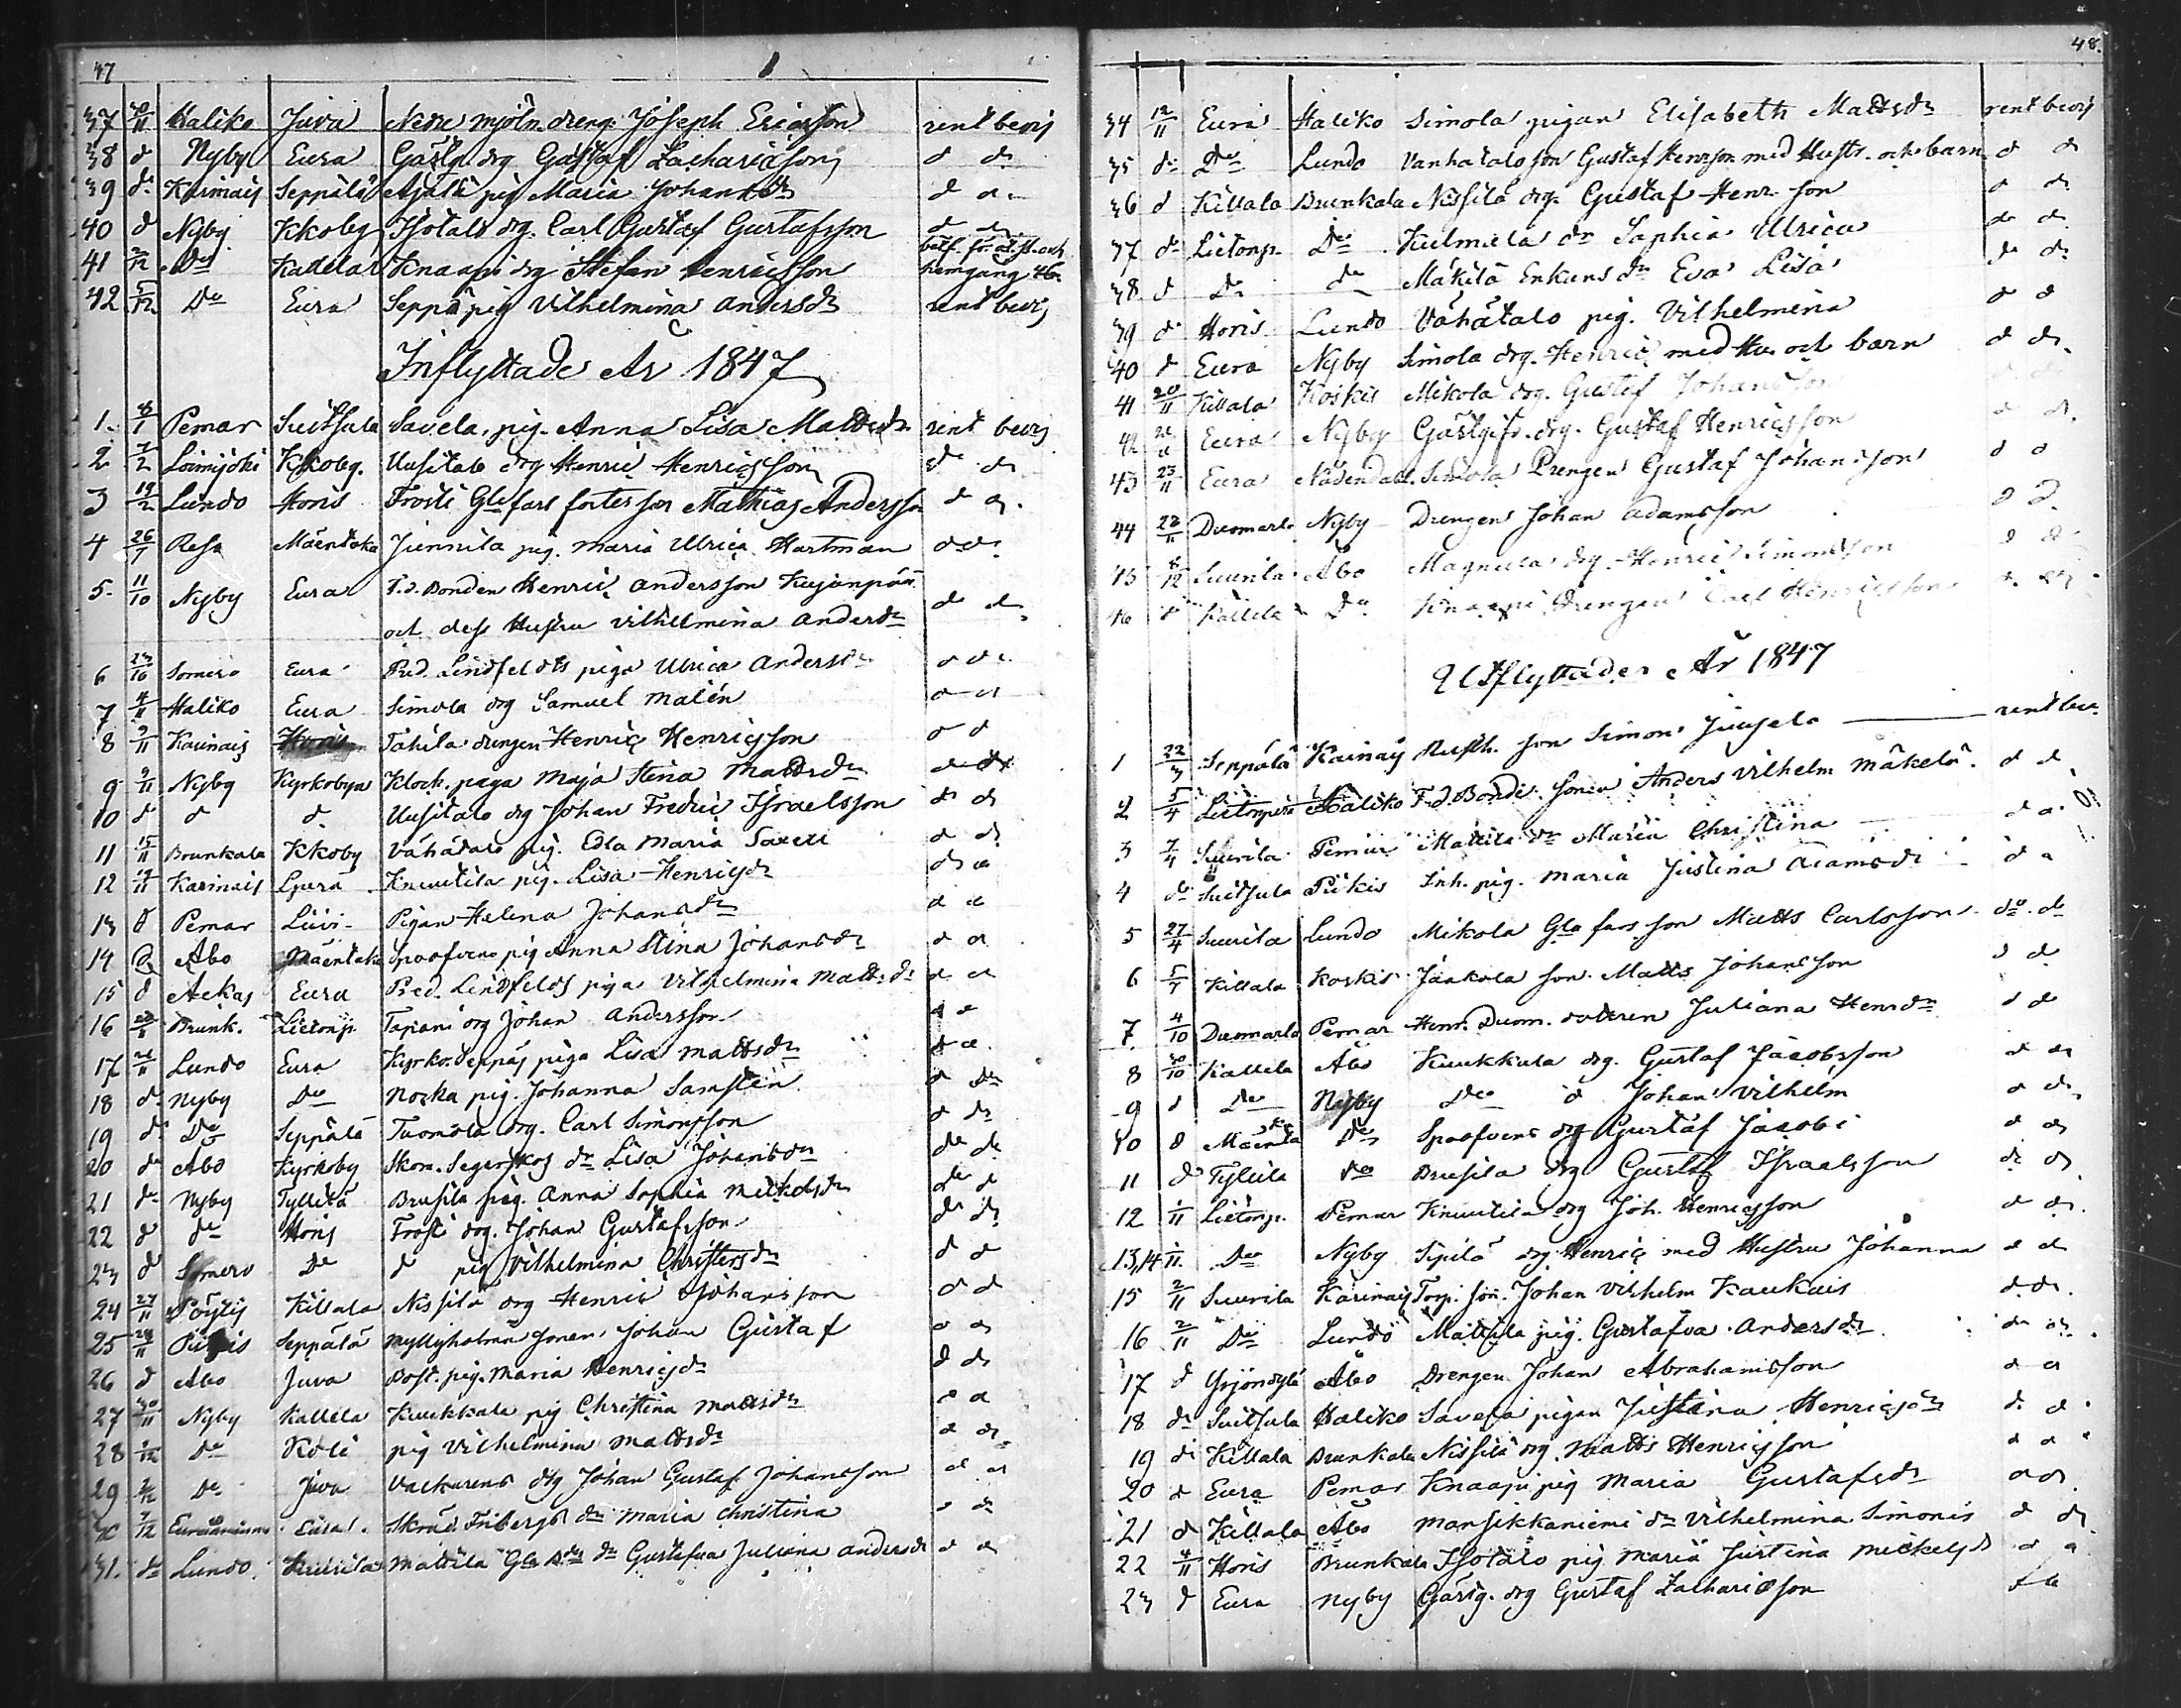 47
37 20/11 Haliko Juva Nedre mjöln. dreng Joseph Ericsson rent bevis
38 d Nyby Eura Gästg. drg Gustaf Zachariæson d d:o
39 d:o Karinais Seppälä Ajala pig Maria Johansd:r d d:o
40 d Nyby Kkoby Isotalo drg. Carl Gustaf Gustafsson d d:o
41 2/12 D:o Kattelar Knaapi drg Stefan Henricsson
hemgång
42 5/12 D:o Eura Seppä pig Vilhelmina Andersd:r rent bevis
Inflyttade År 1847
1. Pemar Suitsula Savela pig. Anna Lisa Mattsd:r rent bevis
2 7/2 Loimijoki Kkoby. Uusitalo drg Henric Henricsson d:o d:o
3 19/2 Lundo Horis Frosti Gla fars Mathias Andersson d d:o
4 26/7 Reso Mäentaka Junnila pig. Maria Ulrica Hartman d:o d:o
5. 11/10 Nyby Eura F.d. Bonden Henric Andersson Kujanpää
och dess Hustru Vilhelmina Andersd:r d:o d:o
6 23/10 Somero Eura Pred. Lindfeldts piga Ulrica Andersd:r d d:o
7 4/11 Haliko Eura Simola drg Samuel Malén d d
8 9/11 Karinais Tähilä drengen Henric Henricsson d d
9 9/11 Nyby Kyrkobyn Klock. piga Maja Stina Mattsd:r d d:o
10 d d d Uusitalo drg Johan Fredric Israelsson d:o d:o
11 15/11 Brunkala Kkoby Vähätalo pig. Edla Maria d d:o
12 19/11 Karinais Knuutila pig. Lisa Henricsd:r d:o d
13 d Pemar Liivi Pigan Helena Johansd:r d d
14 d Åbo Mäentaka Spoofvens pig Anna Stina Johansd:r d d
15 d Aekas Eura Pred. Lindfelds piga Vilhelmina Mattsd:r d d
16 Brunk. Lietonp. Tapani drg Johan Andersson d d
17 Lundo Eura Kyrko. Seppäs piga Lisa Mattsd:r d d.
18 d Nyby D:o Norka pig. Johanna Samstén d D:o
19 d:o D:o Seppälä Tuomola drg. Carl Simonsson d d:o
20 d:o Åbo Kyrkoby Skom. d:r Lisa Johansd:r d:o d:o
21 d:o Nyby Tyllilä Brusila pig. Anna Sophia Mickelsd:r d:o d
22 d d:o Horis Frosti drg. Johan Gustafsson d:o d:o
23 d Somero D:o d pig Vilhelmina Christersd:r d d
24 27/11 Pöytis Killala Nissilä drg Henric Johansson d d
25 29/11 Seppälä Myllyholma sonen Johan Gustaf d d:o
26 d Åbo Juva Rost. pig. Maria Henricsd:r d d:o
27 30/11 Nyby Kallela Kuukkala pig Christina Mattsd:r d d
28 1/12 D:o Koli pig Vilhelmina Mattsd:r d d:o
29 2/12 D:o Juva drg Johan Gustaf Johansson d d
30 7/12 Eura Skräd. Fribergs d:r Maria Christina d d:o
31. d:o Lundo Mattila Gla d:r Gustafva Juliana Andersd:r d d
48.
34 12/11 Eura Haliko Simola pigan Elisabeth Mattsd:r rent bevis
35 d:o D:o Lundo Vanhatalo son Gustaf Henrsson med Hustr. och barn d d
36 d Killala Brunkala Nissilä drg. Gustaf Henr. son d d:o
37 d:o Lietonp. D:o d:r Sophia Ulrica d:o d:o
38. d D:o d:o Mäkilä Enkans d:r Eva Lisa d:o d:o
39 d:o Horis Lundo Vähätalo pig. Vilhelmina d d
40 d Eura Nyby Simola drg. Henric med Hu. och barn d d:o
41 20/11 Killala Koskis Mikola drg. Gustaf Johansson
42 Eura Nyby Gästgifv. drg. Gustaf Henricsson d d.
43 23/11 Eura Nådendal Simola Drengen Gustaf Johansson d d
44 22/11 Duomarla Nyby Drengen Johan Adamsson d d.
45 8/12 Suurila Åbo Magnula drg. Henric Simonsson d d
46 d Kallela D:o Knaapi Drengen Carl Henricsson
Utflyttader År 1847
1 22/3 Seppälä Karinais Rusth. son Simon Juusela rent bev.
2 5/4 Haliko F.d. Bonde sonen Anders Vilhelm Mäkelä d d
3 7/4 Suurila Pemar Mattila d:r Maria Christina d d
4 d:o Suitsula Piikis Inh. pig. Maria Justina Adamsd:r d d
5 27/4 Suurila Lundo Mikola Gla fars son Matts Carlsson d:o d:o
6 Killala Koskis Jaakola son Matts Johansson d d
7. 4/10 Duomarla Pemar Henr. Duom. dotteren Juliana Henrsd:r d d
8 30/10 Kallela Åbo Kuukkala drg. Gustaf Jacobsson d d:o
9 d D:o Nyby D:o d Johan Vilhelm d d:o
10 d Mäenta D:o Spoofvens drg Gustaf Jacobi d d:o
11 d Tyllila D:o Brusila drg Gustaf Israelsson d:o d:o
12 1/11 Lietonp. Pemar Knuutila drg Joh. Henricsson d d:o.
13,14 D:o Nyby Sipilä drg Henric med Hustru Johanna d d
15 2/11 Suurila Karinais Torp. son. Johan Vilhelm Kaukais d d:o.
16 2/11 D:o Lundo Mattila pig. Gustafva Andersd:r d d:o.
17 d Yrjönkylä Åbo Drengen Johan Abrahamsson d d
18 d:o Suitsula Haliko Savela pigan Justina Henricsd:r d. d.
19 d:o Killala Brunkala Nissilä drg. Matts Henricsson d d
20 d Eura Pemar Knaapi pig Maria Gustafsd:r d d:o
21 d Killala Åbo Mansikkaniemi d:r Vilhelmina Simonis d d:o
22 4/11 Horis Brunkala Isotalo pig Maria Justina Mickelsd d d
23 d Eura Nyby Gästg. drg Gustaf Zachariæson d d